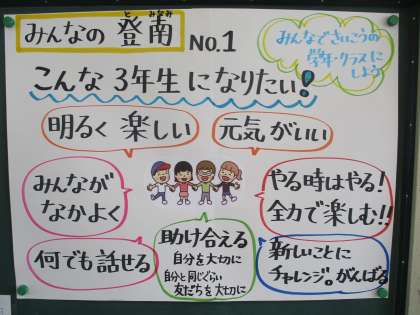 みんなの 登南 No.1
とみなみ
みんなでさいこうの
学年・クラスに
しよう
こんな 3年生 になりたい!
明るく 楽しい
元気がいい
みんなが
なかよく
やる時はやる!
全力で楽しむ!!
何でも話せる
助け合える
自分を大切に
自分と同じぐらい
友だちを大切に
新しいことに
チャレンジ。がんばる